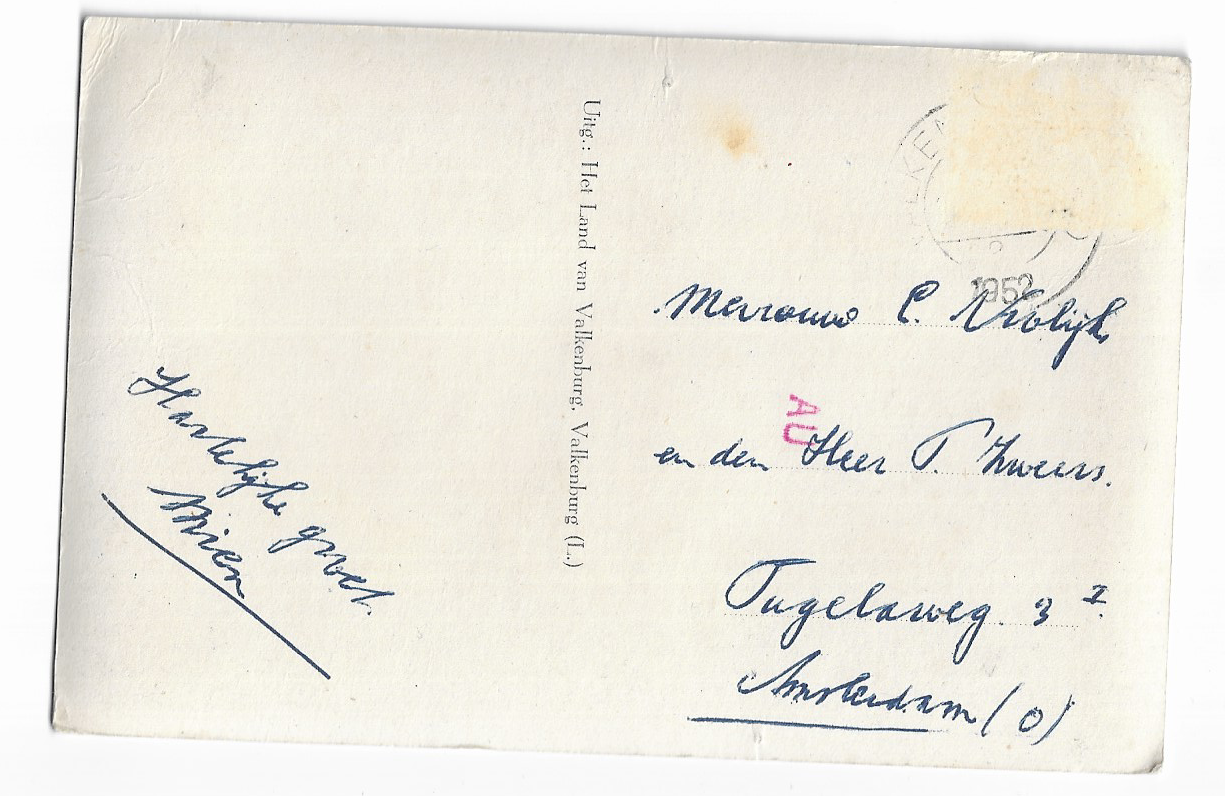 Hartelijke groet.
Mien
Uitg.: Het Land van Valkenburg, Valkenburg (L.)
1952
Mevrouw C. Vrolijk
en den Heer T. Zweers.
AU
Tugelaweg 3 I.
Amsterdam (O)